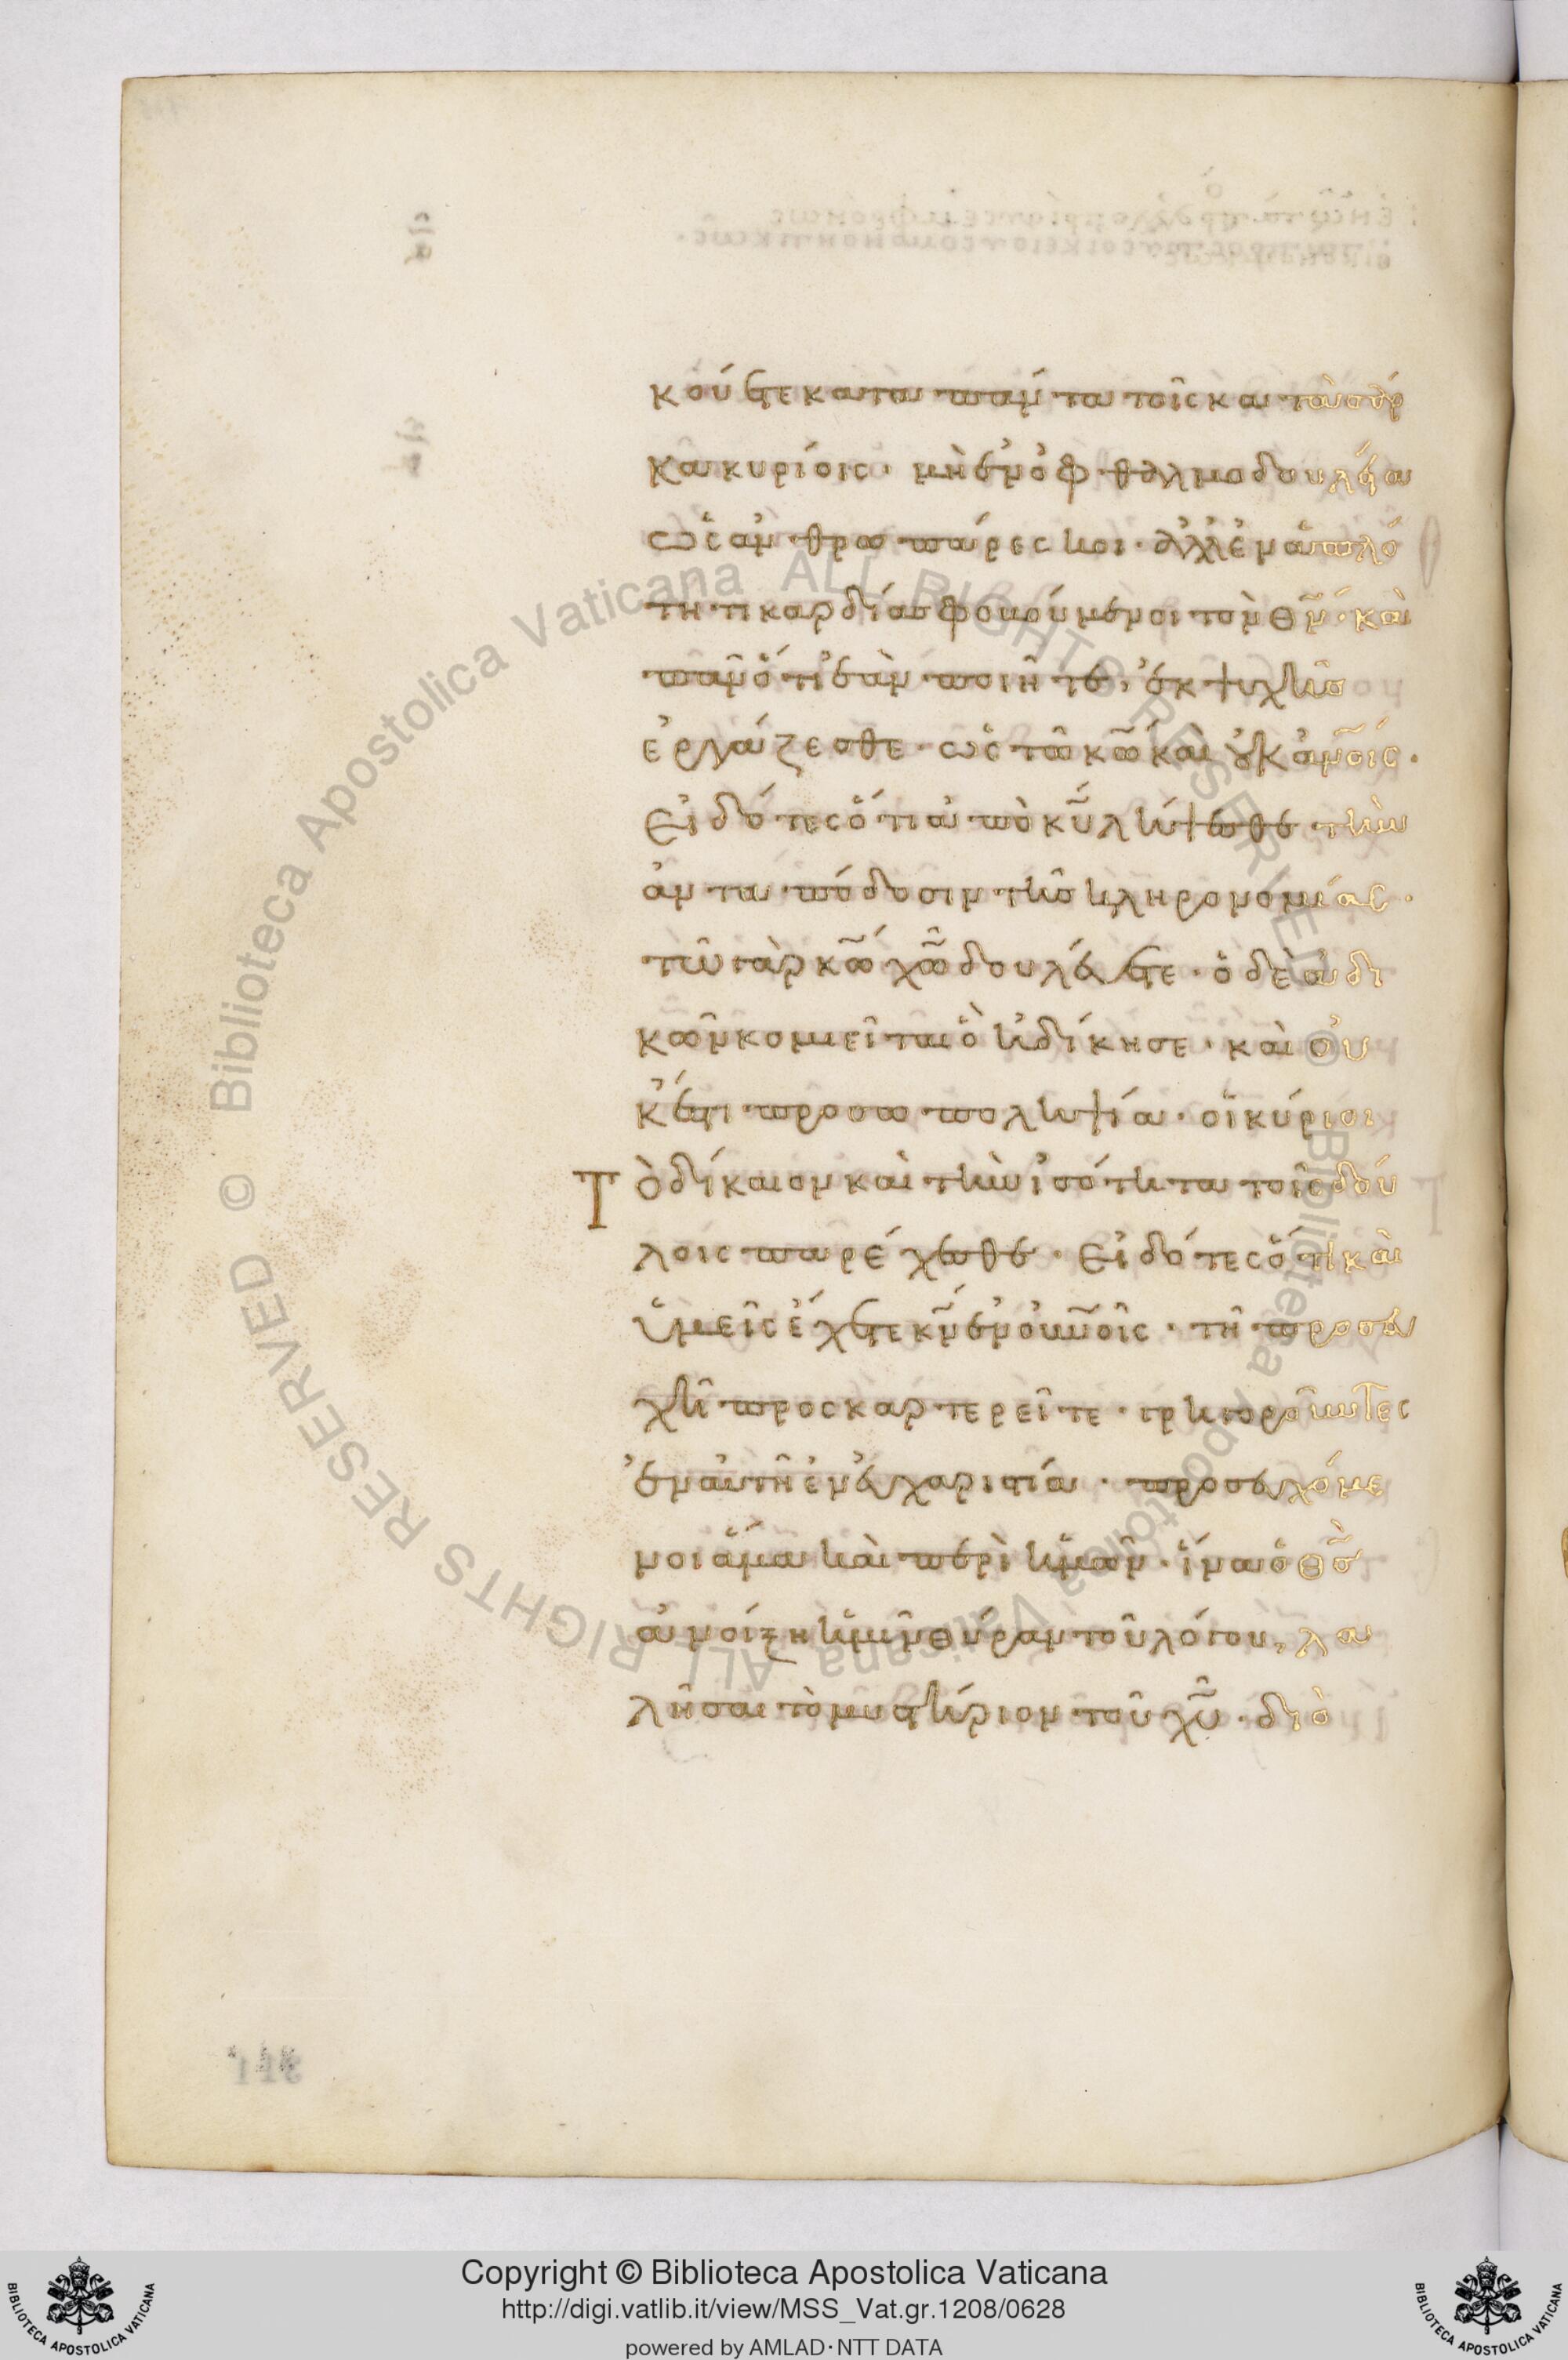 κούετε κατα πάντα τοῖς κατὰ σάρ
κα κυρίοις· μὴ ἐν ὀφθαλμοδουλεία
ὡς ἀνθρωπάρεσκοι· ἀλλ' ἐν ἁπλό
τητι καρδίας φοβούμενοι τὸν θν· καὶ
πᾶν ὅτι ἐὰν ποιῆτε, ἐκ ψυχῆς
ἐργάζεσθε· ὡς τῶ κω καὶ οὐκ ἀνοις·
Εἰδότες ὅτι ἀπὸ κυ λήψεσθε τὴν
ἀνταπόδοσιν τῆς κληρονομίας·
τῶ γὰρ κω χω δουλεύετε· ὁ δὲ ἀδι
κῶν κομιεῖται ὃ ἠδίκησε· καὶ οὐ
κ ἔστι προσωποληψία· οἱ κύριοι
Τὸ δίκαιον καὶ τὴν ἰσότητα τοῖς δού
λοις παρέχεσθε· Εἰδότες ὅτι καὶ
ὑμεῖς ἔχετε κν ἐν οὐνοῖς· τῆ προσευ
χῆ προσκαρτερεῖτε· γρηγοροῦντες
ἐν αὐτῆ ἐν εὐχαριστία· προσευχόμε
νοι ἅμα καὶ περὶ ἡμῶν· ἵνα ὁ θς
ἀνοίξη ἡμῖν θύραν τοῦ λόγου, λα
λῆσαι τὸ μυστήριον τοῦ χυ· διὸ
Copyright © Biblioteca Apostolica Vaticana
http://digi.vatlib.it/view/MSS_Vat.gr.1208/0628
powered by AMLAD·NTT DATA
BIBLIOTECA APOSTOLICA VATICANA
BIBLIOTECA APOSTOLICA VATICANA
© Biblioteca Apostolica Vaticana ALL RIGHTS RESERVED
© Biblioteca Apostolica Vaticana ALL RIGHTS RESERVED